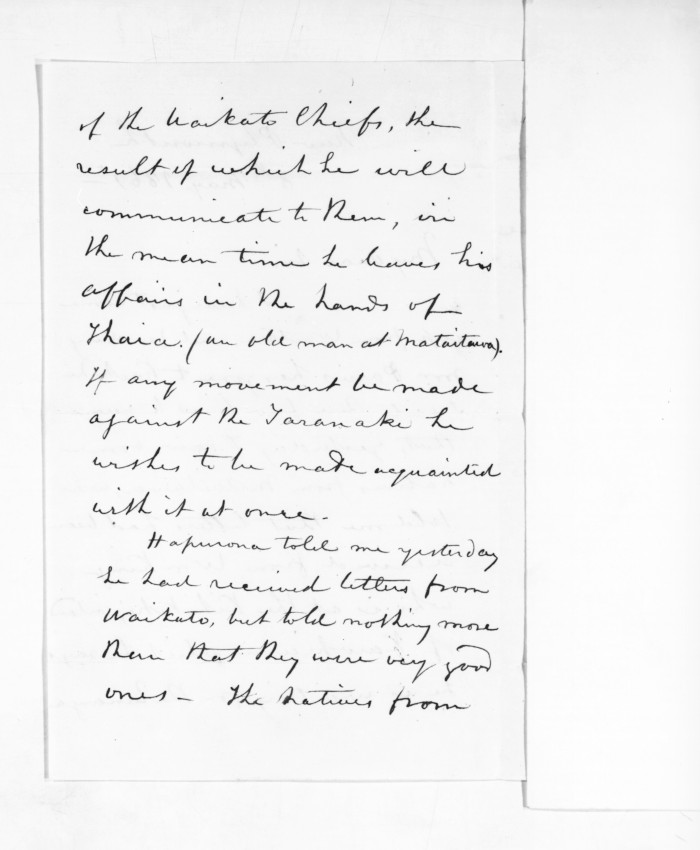 of the Waikato Chiefs, the
result of which he will
communicate to them, in
the mean time he leaves his
affairs in the hands of
Ihaia. (an old man at Mataitawa).
If any movement be made
against the Taranaki he
wishes to be made acquainted
with it at once.
Hapurona told me yesterday
he had received letters from
Waikato, but told nothing more
than that they were very good
ones - The Natives from